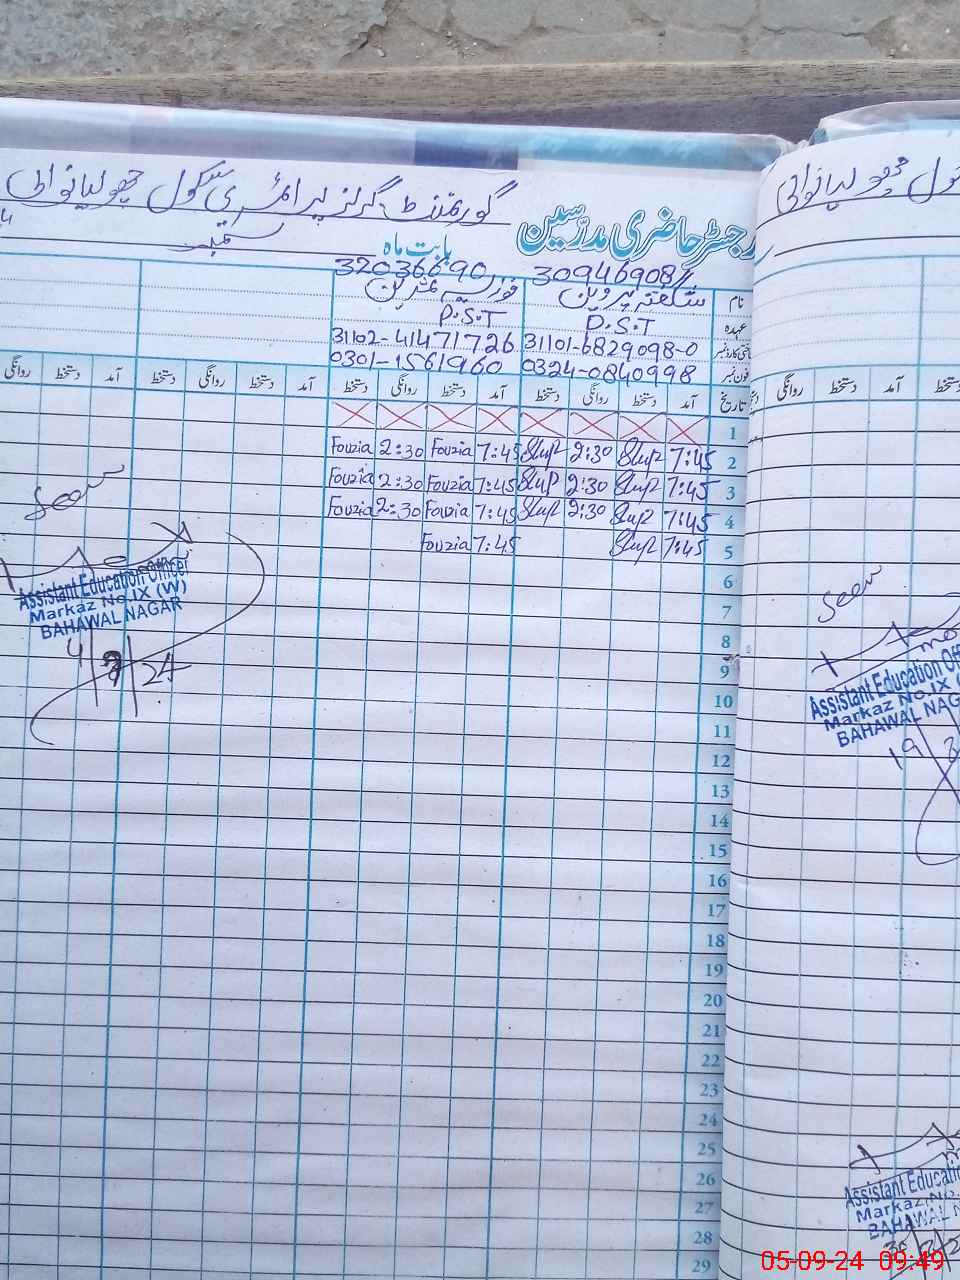 گورنمنٹ گرلز پرائمری سکول جھولیانوالی
رجسٹر حاضری مدرسین
بابت ماہ ستمبر
32036690 30946908
نام شگفتہ پروین فوزیہ
عہدہ P.S.T P.S.T
31101-6829098-0 31102-41471726
فون نمبر 0324-0840998 0301-1561960
تاریخ آمد دستخط روانگی دستخط آمد دستخط روانگی دستخط آمد دستخط روانگی دستخط آمد دستخط روانگی
1
2 7:45 2:30 7:45 Fouzia 2:30 Fouzia
3 7:45 2:30 7:45 Fouzia 2:30 Fouzia
4 7:45 2:30 7:45 Fouzia 2:30 Fouzia
5 7:45 7:45 Fouzia
6
7
8
9
10
11
12
13
14
15
16
17
18
19
20
21
22
23
24
25
26
27
28
29
Seen
Assistant Education Officer
Markaz No.IX (W)
BAHAWAL NAGAR
جھولیانوالی
روانگی دستخط آمد
Seen
Assistant Education
Markaz No.IX
BAHAWAL
19
Assistant
Markaz No.
BAHAWAL
05-09-24 09:49